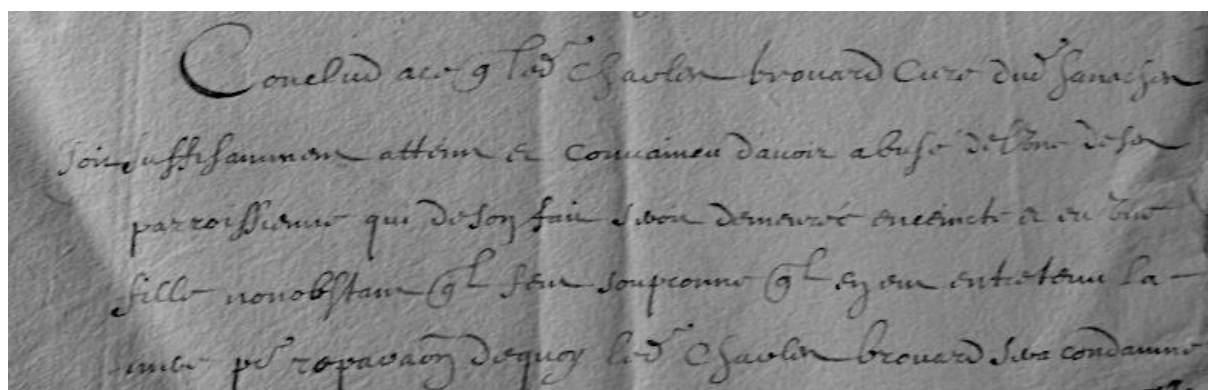 Conclud ace q led Charles brouard Cure dud
soit suffisamment atteint et convaincu davoir abusé de lune de ses
parroissienne qui de son fait seroit demeurée enceincte et eu une
fille nonobstant ql feut soupconne ql en eut entretenu la
mere po reparaon dequoy led Charles brouard sera condamné